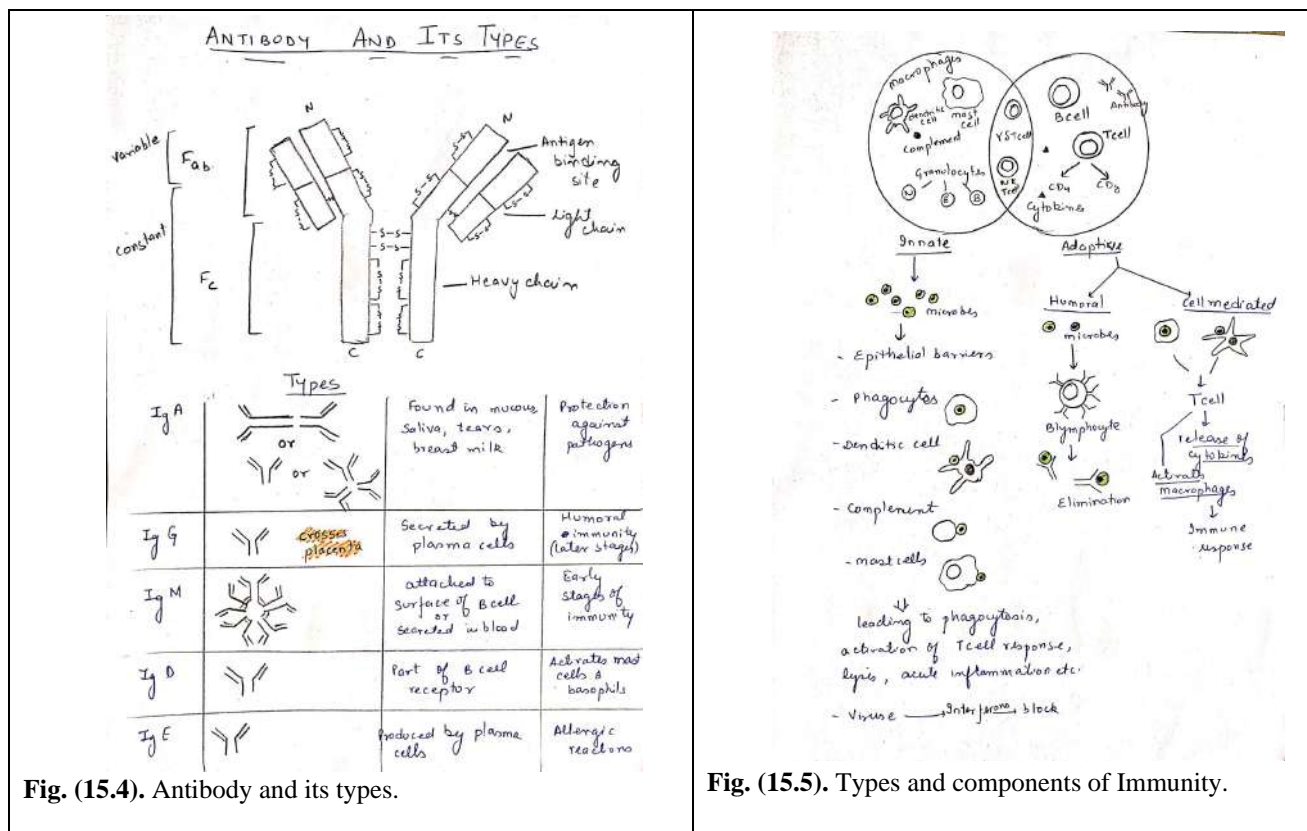 ANTIBODY AND ITS TYPES
N
N
variable
Fab.
Antigen
binding
site
S-S
Light
chain
constant
S-S
S-S
Fc
Heavy chain
C
C
Types
IgA
or
or
Found in mucous
Saliva, tears,
breast milk
Protection
against
pathogens
IgG
Crosses
placenta
Secreted by
plasma cells
Humoral
immunity
(Later stages)
IgM
attached to
surface of B cell
or
secreted in blood
Early
stages of
immunity
IgD
Part of B cell
receptor
Activates mast
cells &
basophils
IgE
Produced by plasma
cells
Allergic
reactions
Fig. (15.4). Antibody and its types.
Macrophages
Dendritic
cell
mast
cell
Complement
Granulocytes
N
E
B
γδTcell
NK
Tcell
Bcell
Antibody
Tcell
CD4
CD8
Cytokines
Innate
Adaptive
microbes
- Epithelial barriers
- Phagocytes
- Denditic cell
- Complement
- mast cells
leading to phagocytosis,
activation of Tcell response,
lysis, acute inflammation etc.
- Viruse → Interferons → block
Humoral
microbes
Blymphocyte
Elimination
Cell mediated
Tcell
release of
cytokines
Activates
macrophages
Immune
response
Fig. (15.5). Types and components of Immunity.